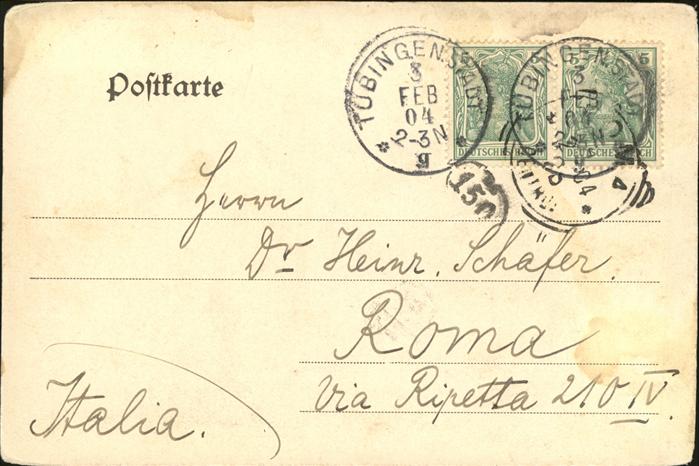 Postkarte
TÜBINGEN STADT
3
FEB
04
2-3N
* g *
TÜBINGEN STADT
3
FEB
04
5
DEUTSCHES REICH
DEUTSCHES REICH
150
Herrn
Dr Heinr. Schäfer.
Roma
Via Ripetta 210 IV.
Italia.